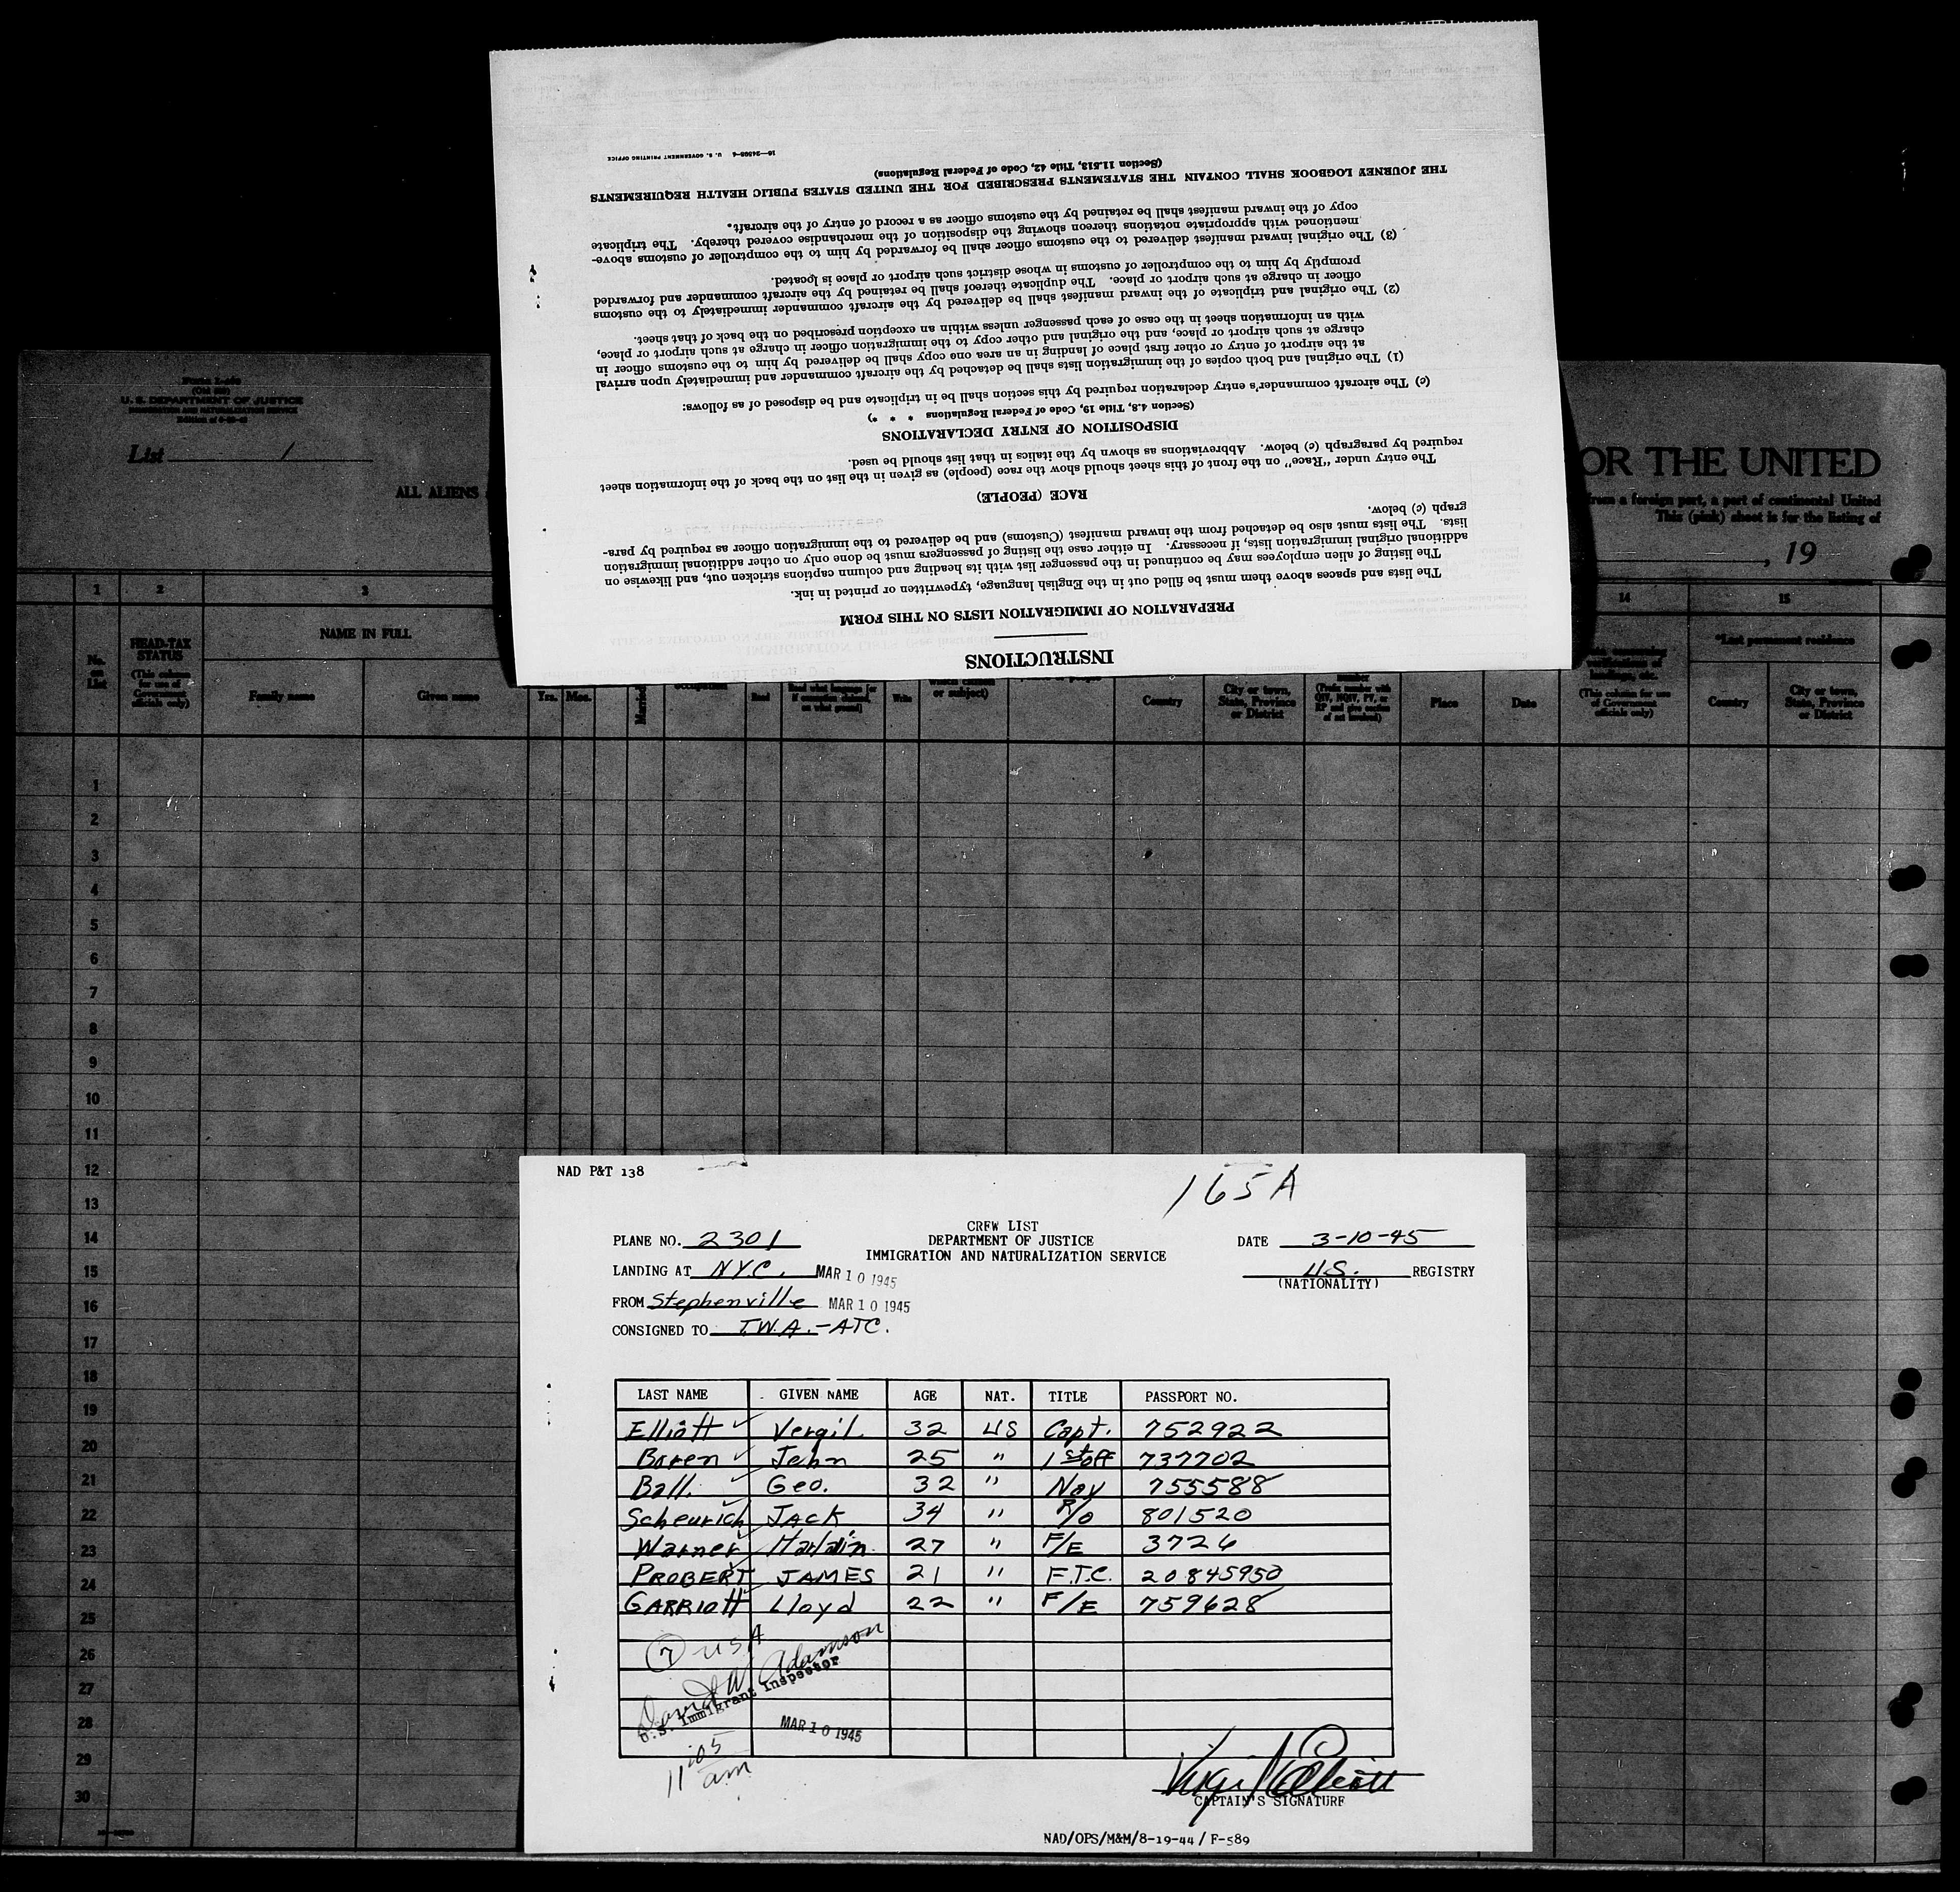 16—24508-4 U. S. GOVERNMENT PRINTING OFFICE
INSTRUCTIONS
PREPARATION OF IMMIGRATION LISTS ON THIS FORM
The lists and spaces above them must be filled out in the English language, typewritten or printed in ink.
The listing of alien employees may be continued in the passenger list with its heading and column captions stricken out, and likewise on
additional original immigration lists, if necessary. In either case the listing of passengers must be done only on other additional immigration
lists. The lists must also be detached from the inward manifest (Customs) and be delivered to the immigration officer as required by para-
graph (c) below.
RACE (PEOPLE)
The entry under "Race" on the front of this sheet should show the race (people) as given in the list on the back of the information sheet
required by paragraph (c) below. Abbreviations as shown by the italics in that list should be used.
DISPOSITION OF ENTRY DECLARATIONS
(Section 4.8, Title 19, Code of Federal Regulations * * *)
(c) The aircraft commander's entry declaration required by this section shall be in triplicate and be disposed of as follows:
(1) The original and both copies of the immigration lists shall be detached by the aircraft commander and immediately upon arrival
at the airport of entry or other first place of landing in an area one copy shall be delivered by him to the customs officer in
charge at such airport or place, and the original and other copy to the immigration officer in charge at such airport or place,
with an information sheet in the case of each passenger unless within an exception prescribed on the back of that sheet.
(2) The original and triplicate of the inward manifest shall be delivered by the aircraft commander immediately to the customs
officer in charge at such airport or place. The duplicate thereof shall be retained by the aircraft commander and forwarded
promptly by him to the comptroller of customs in whose district such airport or place is located.
(3) The original inward manifest delivered to the customs officer shall be forwarded by him to the comptroller of customs above-
mentioned with appropriate notations thereon showing the disposition of the merchandise covered thereby. The triplicate
copy of the inward manifest shall be retained by the customs officer as a record of entry of the aircraft.
THE JOURNEY LOGBOOK SHALL CONTAIN THE STATEMENTS PRESCRIBED FOR THE UNITED STATES PUBLIC HEALTH REQUIREMENTS
(Section 11.513, Title 42, Code of Federal Regulations)
U. S. DEPARTMENT OF JUSTICE
IMMIGRATION AND NATURALIZATION SERVICE
List 1
ALL ALIENS
OR THE UNITED
from a foreign port, a port of continental United
This (pink) sheet is for the listing of
, 19
1 2 3 14 15
No. on List
HEAD-TAX STATUS
(This column for use of Government officials only)
NAME IN FULL
Family name Given name
Yrs. Mos.
Married
Read
Read what language [or if exemption claimed, on what ground]
Write
or subject)
Country
City or town, State, Province or District
Place Date
(This column for use of Government officials only)
*Last permanent residence
Country
City or town, State, Province or District
1
2
3
4
5
6
7
8
9
10
11
12
13
14
15
16
17
18
19
20
21
22
23
24
25
26
27
28
29
30
NAD P&T 138
165A
CREW LIST
PLANE NO. 2301 DEPARTMENT OF JUSTICE DATE 3-10-45
IMMIGRATION AND NATURALIZATION SERVICE
LANDING AT N.Y.C. MAR 10 1945 U.S. REGISTRY
(NATIONALITY)
FROM Stephenville MAR 10 1945
CONSIGNED TO T.W.A.-ATC.
LAST NAME GIVEN NAME AGE NAT. TITLE PASSPORT NO.
Elliott Vergil 32 US Capt. 752922
Boren John 25 " 1st off 737702
Ball. Geo. 32 " Nav 755588
Scheurich Jack 34 " R/O 801520
Warner Harlain 27 " F/E 3726
PROBERT JAMES 21 " F.T.C. 20845950
GARRIott Lloyd 22 " F/E 759628
7 USA
David W Adamson
U.S. Immigrant Inspector
MAR 10 1945
11:05 am
Virgil Elliott
CAPTAIN'S SIGNATURE
NAD/OPS/M&M/8-19-44/ F-589